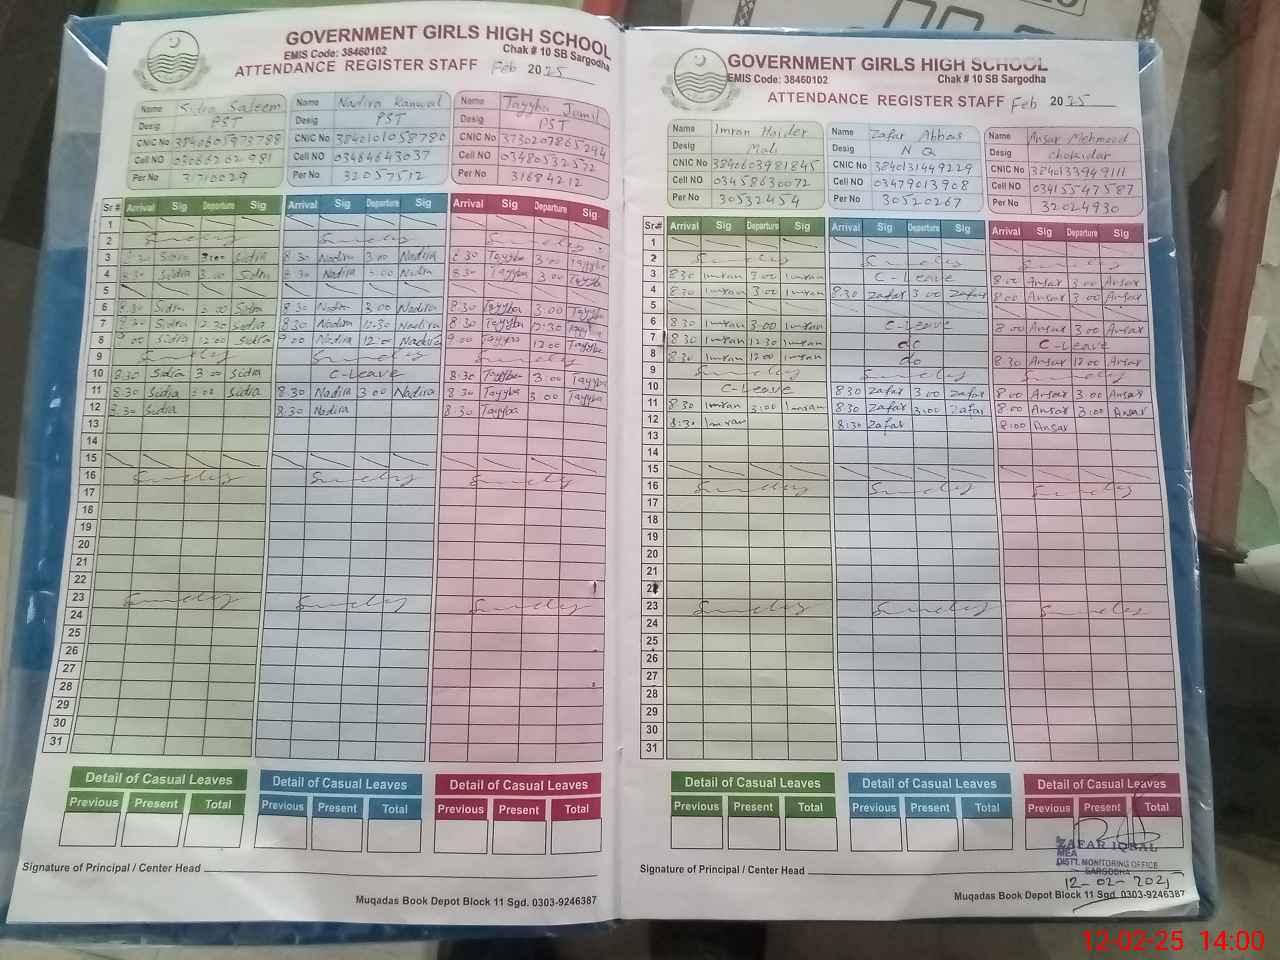 GOVERNMENT GIRLS HIGH SCHOOL
EMIS Code: 38460102 Chak # 10 SB Sargodha
ATTENDANCE REGISTER STAFF Feb 2025
Name Sidra Saleem Name Nadira Kanwal Name Tayyba Jamil
Desig PST Desig PST Desig PST
CNIC No 3840605973788 CNIC No 3840101058780 CNIC No 3730207865294
Cell NO 03066262981 Cell NO 03464643037 Cell NO 03480532532
Per No 31710029 Per No 32057512 Per No 31684212
Sr # Arrival Sig Departure Sig Arrival Sig Departure Sig Arrival Sig Departure Sig
1
2 Sunday Sunday Sunday
3 8:30 Sidra 3:00 Sidra 8 30 Nadira 3 00 Nadira 8 30 Tayyba 3:00 Tayyba
4 8:30 Sidra 3:00 Sidra 8 30 Nadira 3:00 Nadira 8:30 Tayyba 3:00 Tayyba
5
6 8:30 Sidra 3:00 Sidra 8 30 Nadira 3:00 Nadira 8:30 Tayyba 3:00 Tayyba
7 8:30 Sidra 12 30 Sidra 8:30 Nadira 12:30 Nadira 8 30 Tayyba 12:30 Tayyba
8 9:00 Sidra 12:00 Sidra 9:00 Nadira 12:00 Nadira 9:00 Tayyba 12:00 Tayyba
9 Sunday Sunday Sunday
10 8:30 Sidra 3:00 Sidra C-Leave 8:30 Tayyba 3:00 Tayyba
11 8:30 Sidra 3:00 Sidra 8:30 Nadira 3:00 Nadira 8:30 Tayyba 3:00 Tayyba
12 8:30 Sidra 8:30 Nadira 8:30 Tayyba
13
14
15
16 Sunday Sunday Sunday
17
18
19
20
21
22
23 Sunday Sunday Sunday
24
25
26
27
28
29
30
31
Detail of Casual Leaves Detail of Casual Leaves Detail of Casual Leaves
Previous Present Total Previous Present Total Previous Present Total
Signature of Principal / Center Head
Muqadas Book Depot Block 11 Sgd. 0303-9246387
GOVERNMENT GIRLS HIGH SCHOOL
EMIS Code: 38460102 Chak # 10 SB Sargodha
ATTENDANCE REGISTER STAFF Feb 2025
Name Imran Haider Name Zafar Abbas Name Ansar Mehmood
Desig Mali Desig N Q Desig chokidar
CNIC No 3840603981845 CNIC No 3840131449229 CNIC No 3840133949111
Cell NO 03458630072 Cell NO 03479013908 Cell NO 03415547587
Per No 30532454 Per No 30520267 Per No 32024930
Sr# Arrival Sig Departure Sig Arrival Sig Departure Sig Arrival Sig Departure Sig
1
2 Sunday Sunday Sunday
3 8 30 Imran 3:00 Imran C-Leave 8:00 Ansar 3:00 Ansar
4 8:30 Imran 3:00 Imran 8:30 Zafar 3:00 Zafar 8:00 Ansar 3:00 Ansar
5
6 8:30 Imran 3:00 Imran C-Leave 8:00 Ansar 3:00 Ansar
7 8:30 Imran 12:30 Imran do C-Leave
8 8:30 Imran 12:00 Imran do 8:30 Ansar 12:00 Ansar
9 Sunday Sunday Sunday
10 C-Leave 8:30 Zafar 3:00 Zafar 8:00 Ansar 3:00 Ansar
11 8:30 Imran 3:00 Imran 8:30 Zafar 3:00 Zafar 8:00 Ansar 3:00 Ansar
12 8:30 Imran 8:30 Zafar 8:00 Ansar
13
14
15
16 Sunday Sunday Sunday
17
18
19
20
21
22
23 Sunday Sunday Sunday
24
25
26
27
28
29
30
31
Detail of Casual Leaves Detail of Casual Leaves Detail of Casual Leaves
Previous Present Total Previous Present Total Previous Present Total
ZAFAR IQBAL
MEA
DISTT. MONITORING OFFICE
SARGODHA
Signature of Principal / Center Head
12-02-2025
Muqadas Book Depot Block 11 Sgd. 0303-9246387
12-02-25 14:00